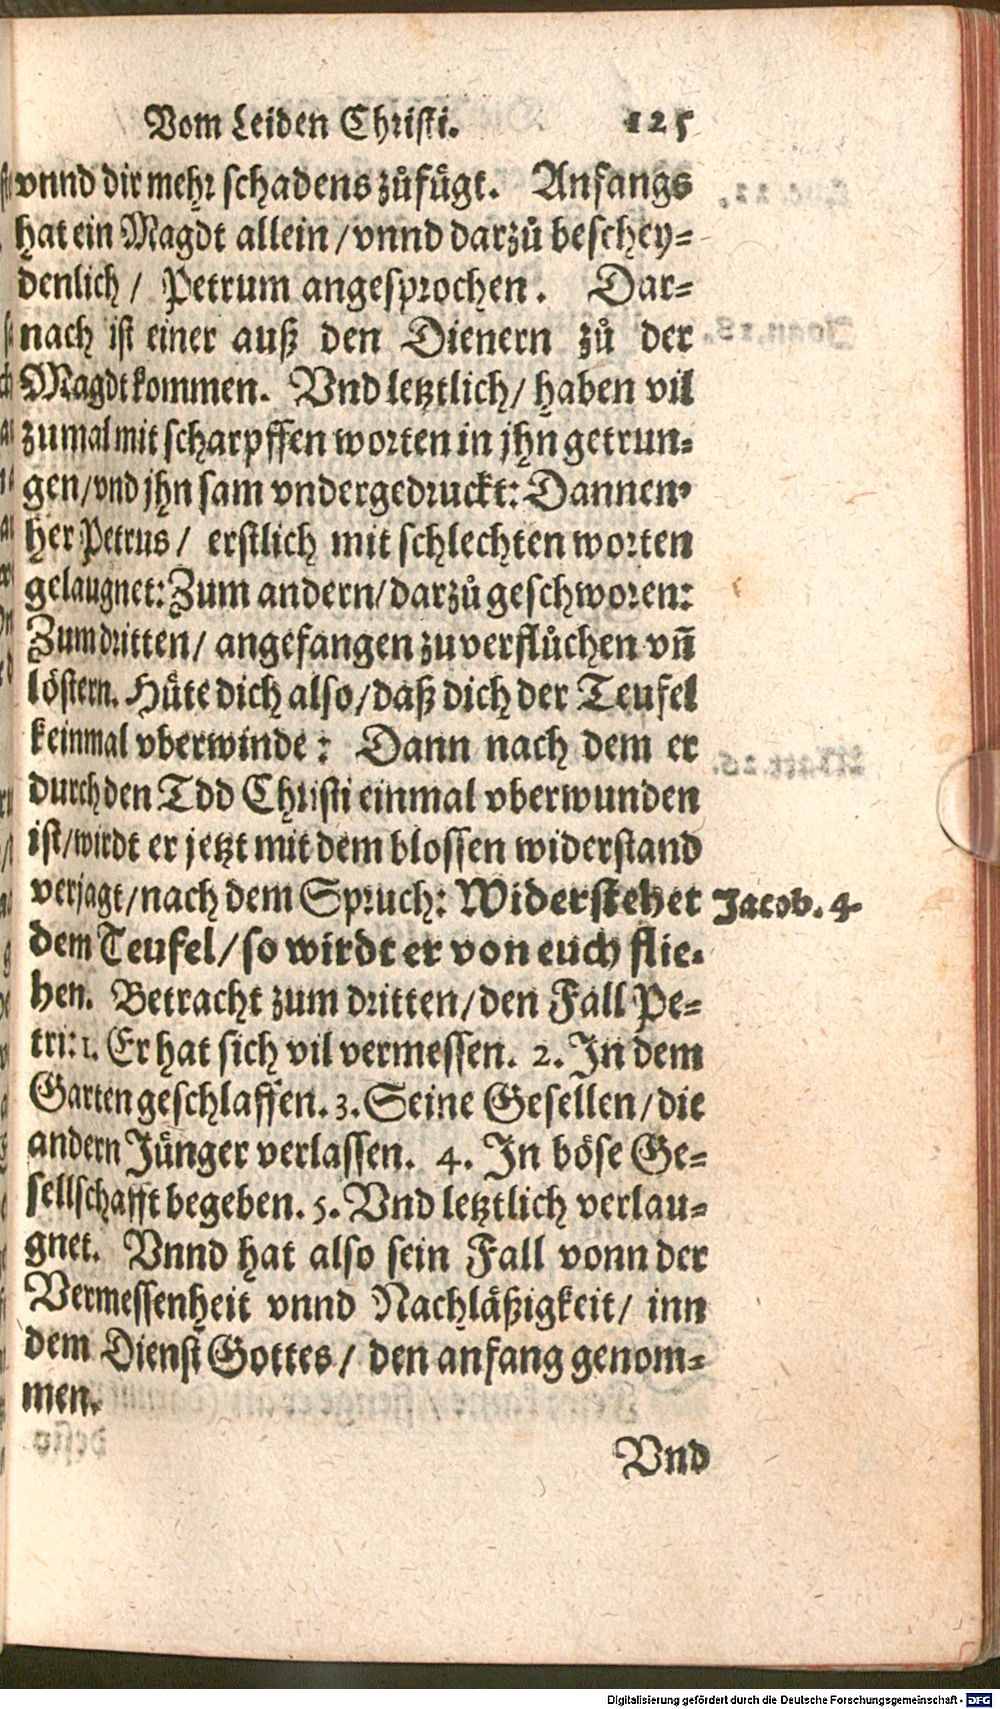 Vom Leiden Christi. 125
vnnd dir mehr schadens zůfůgt. Anfangs
hat ein Magdt allein / vnnd darzů beschey-
denlich / Petrum angesprochen. Dar-
nach ist einer auß den Dienern zů der
Magdt kommen. Vnd letztlich / haben vil
zumal mit scharpffen worten in jhn getrun-
gen / vnd jhn sam vndergedruckt: Dannen-
her Petrus / erstlich mit schlechten worten
gelaugnet: Zum andern / darzů geschworen:
Zum dritten / angefangen zu verflůchen vñ
löstern. Hůte dich also / daß dich der Teufel
keinmal vberwinde: Dann nach dem er
durch den Tdd Christi einmal vberwunden
ist / wirdt er jetzt mit dem blossen widerstand
verjagt / nach dem Spruch: Widerstehet Jacob. 4.
dem Teufel / so wirdt er von euch flie-
hen. Betracht zum dritten / den Fall Pe-
tri: 1. Er hat sich vil vermessen. 2. In dem
Garten geschlaffen. 3. Seine Gesellen / die
andern Jůnger verlassen. 4. In böse Ge-
sellschafft begeben. 5. Vnd letztlich verlau-
gnet. Vnnd hat also sein Fall vonn der
Vermessenheit vnnd Nachlåßigkeit / inn
dem Dienst Gottes / den anfang genom-
men.
Vnd
Digitalisierung gefördert durch die Deutsche Forschungsgemeinschaft - DFG